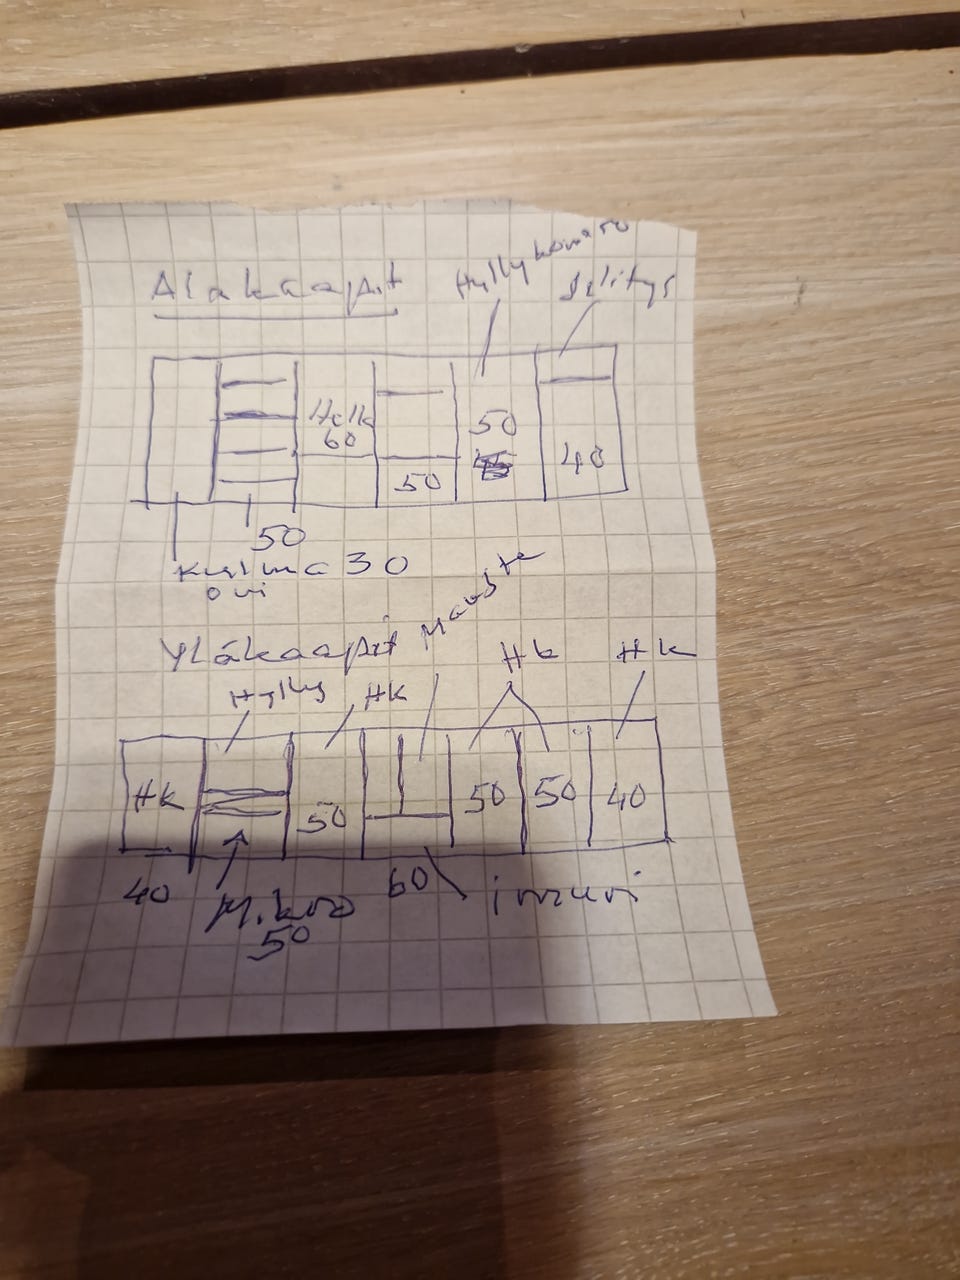 Alakaapit
Hyllykomero
Silitys
Hella
60
50
50
40
50
Kulma 30
ovi
Yläkaapit
Mauste
Hylly
HK
Hk
Hk
HK
50
50
50
40
40
Mikro
50
60
imuri